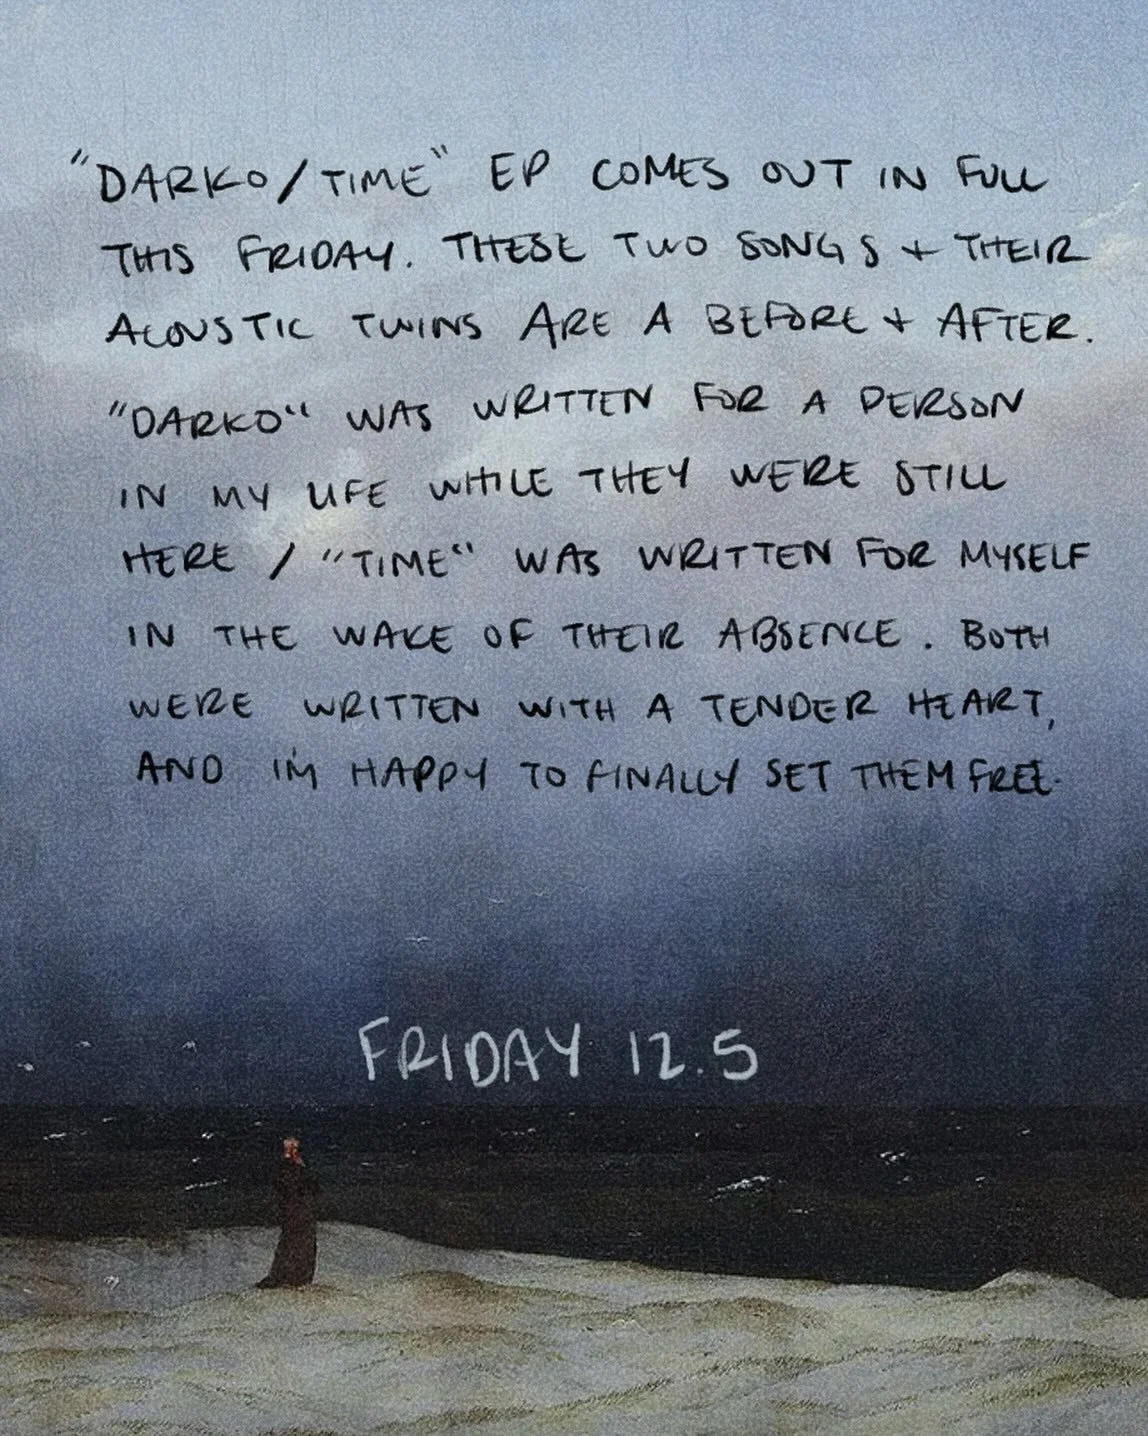 "DARKO/TIME" EP COMES OUT IN FULL
THIS FRIDAY. THESE TWO SONGS + THEIR
ACOUSTIC TWINS ARE A BEFORE + AFTER.
"DARKO" WAS WRITTEN FOR A PERSON
IN MY LIFE WHILE THEY WERE STILL
HERE / "TIME" WAS WRITTEN FOR MYSELF
IN THE WAKE OF THEIR ABSENCE. BOTH
WERE WRITTEN WITH A TENDER HEART,
AND I'M HAPPY TO FINALLY SET THEM FREE.
FRIDAY 12.5